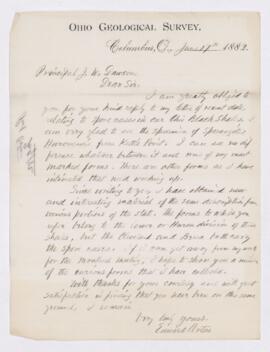 OHIO GEOLOGICAL SURVEY.
Columbus, O., June 17th 1882.
Principal J. W. Dawson
Dear Sir:
I am greatly obliged to
you for your kind reply to my letter of recent date
relating to spore cases in our Black Shale. I
am very glad to see the specimen of Sporangites
Huronensis from Kettle Point. I can see no dif-
ference whatever between it and one of my most
marked forms. There are other forms as I have
intimated that need working up.
Since writing to you I have obtained new
and interesting material of the same description from
various portions of the state. The forms to which you
belong to the lower or Huron division of the
shales, but the Cleveland and Erie also carry
the spore cases. If I can get away from my work
for the Montreal meeting, I hope to show you a number
of the curious forms that I have collected.
With thanks for your courtesy and with great
satisfaction in finding that you have been on the same
ground, I remain
Very truly yours
Edward Orton